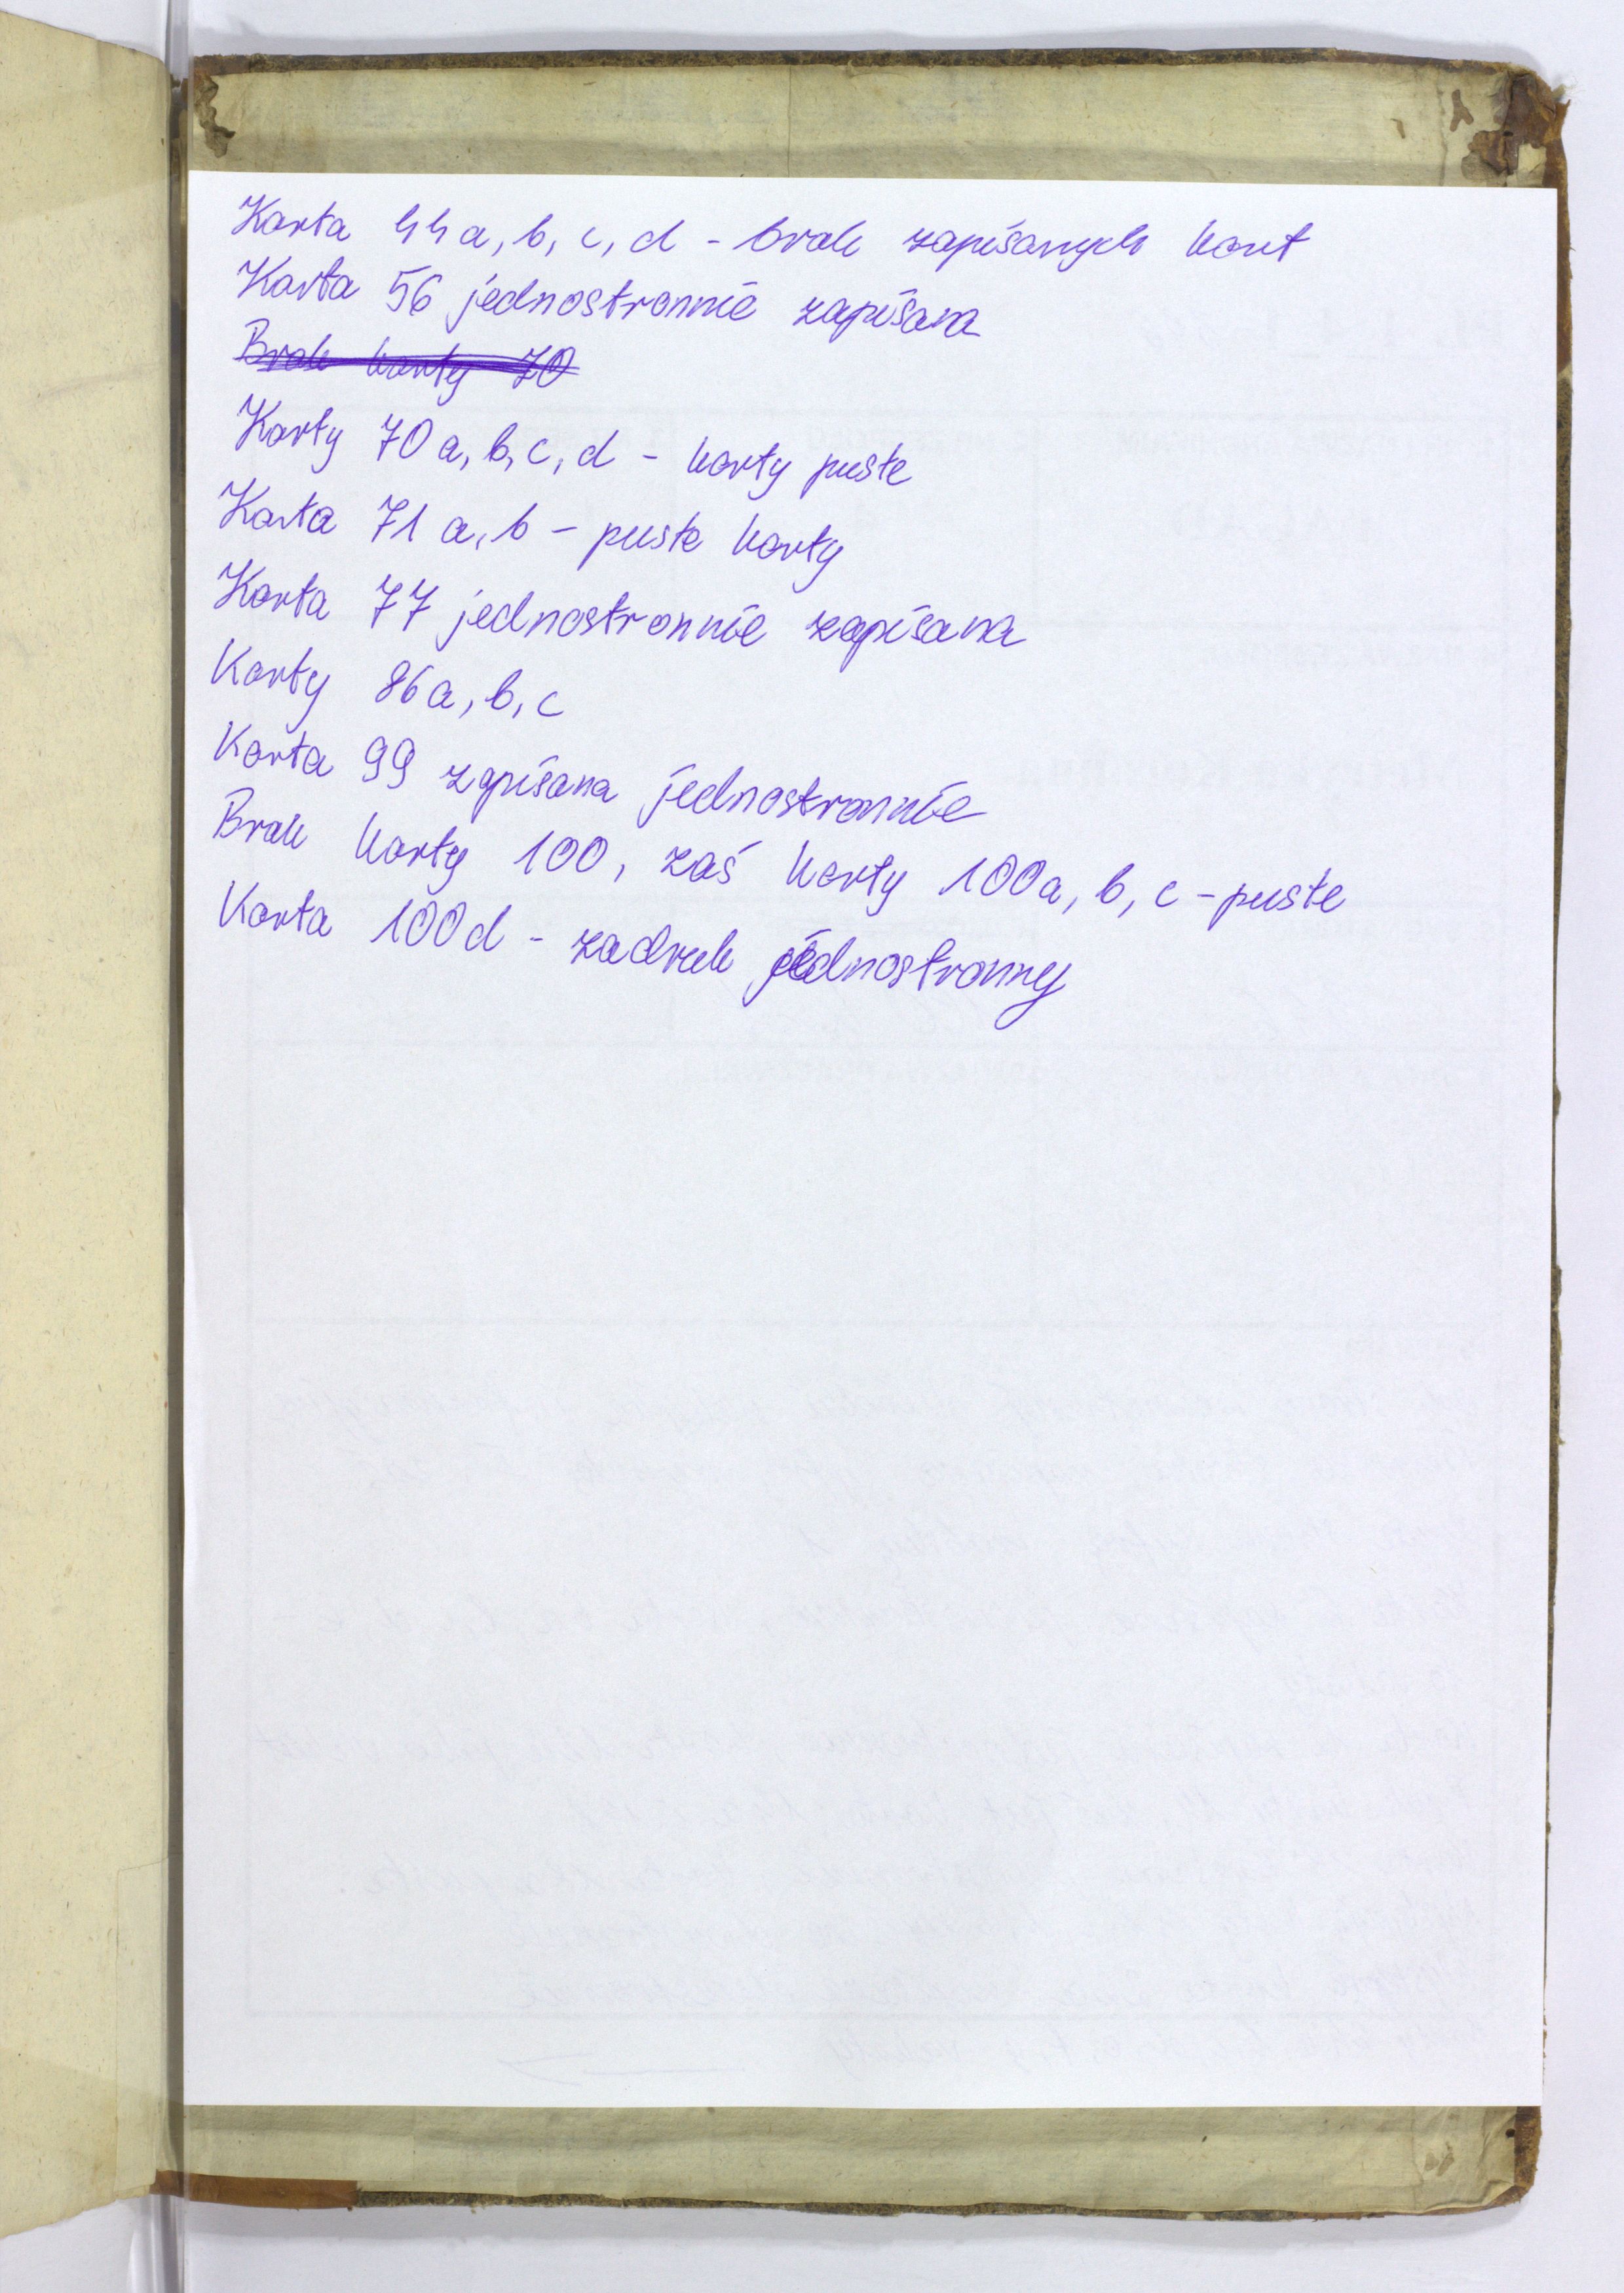 Karta 44a, b, c, d - brak zapisanych kart
Karta 56 jednostronnie zapisana
Brak karty 70
Karty 70a, b, c, d - karty puste
Karta 71 a, b - puste karty
Karta 77 jednostronnie zapisana
Karty 86a, b, c
Karta 99 zapisana jednostronnie
Brak karty 100, zaś karty 100a, b, c - puste
Karta 100d - zadruk jednostronny